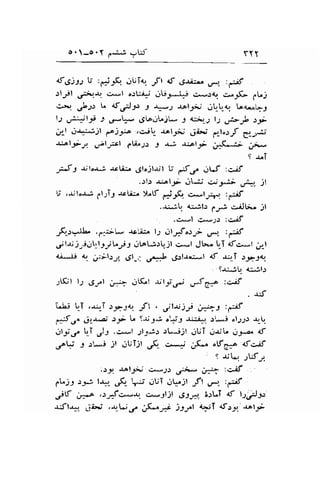 ۳۲۲ کتاب ششم ۵۰۲_۵۰۱
گفتم: پس معتقدی که اگر به‌آنان بگوئیم: تا روزی‌که
زمام حکومت به‌دست فیلسوفان نیفتاده است به‌بدبختی افراد
وجامعه‌ها پایان نخواهد رسید و دولتی‌که ما درطی بحث
خود طرحش را ریخته و سازمانهای سیاسی و قوانینش را
تشریح کرده‌ایم تحقق نخواهد یافت، هنوزهم ازشنیدن این
سخن خشمگین خواهند شد و درمقام اعتراض برخواهند
آمد ؟
گفت: گمان می‌کنم تا اندازه‌ای متقاعد شده‌اند وکمتر
از پیش خشونت نشان خواهند داد.
گفتم: بهتراست بگوئیم کاملا متقاعد وآرام شده‌اند، تا
از مخالفت شرم داشته باشند.
گفت: درست است.
گفتم: پس خرده‌گیران را متقاعد ساختیم. مطلب‌دیگر
این است‌که آیا محال است ازپادشاهان وفرمانروایان‌فرزندانی
به‌وجود آیند که استعداد طبیعی برای پرداختن به فلسفه
داشته باشند؟
گفت: هیچکس نمی‌تواند امکان چنین امری را انکار
کند.
گفتم: وچنین فرزندانی ، اگر به‌وجود آیند، آیا قطعاً
باید درراه فساد بیفتند وتباه شوند؟ ما خود تصدیق می‌کنیم
که مصون ماندن آنان ازفساد دشوار است. ولی آیا می‌توان
گفت‌که هیچگاه ممکن نیست یکی ازآنان از فساد و تباهی
برکنار بماند ؟
گفت: چنین سخنی درست نخواهد بود.
گفتم: پس اگر ازمیان آنان تنها یکی پیدا شود وزمام
دولتی‌را که آمادهٔ پیروی ازاوست به‌دست‌گیرد، همین کافی
خواهد بودکه آنچه امروز غیرممکن می‌نماید، تحقق پیداکند